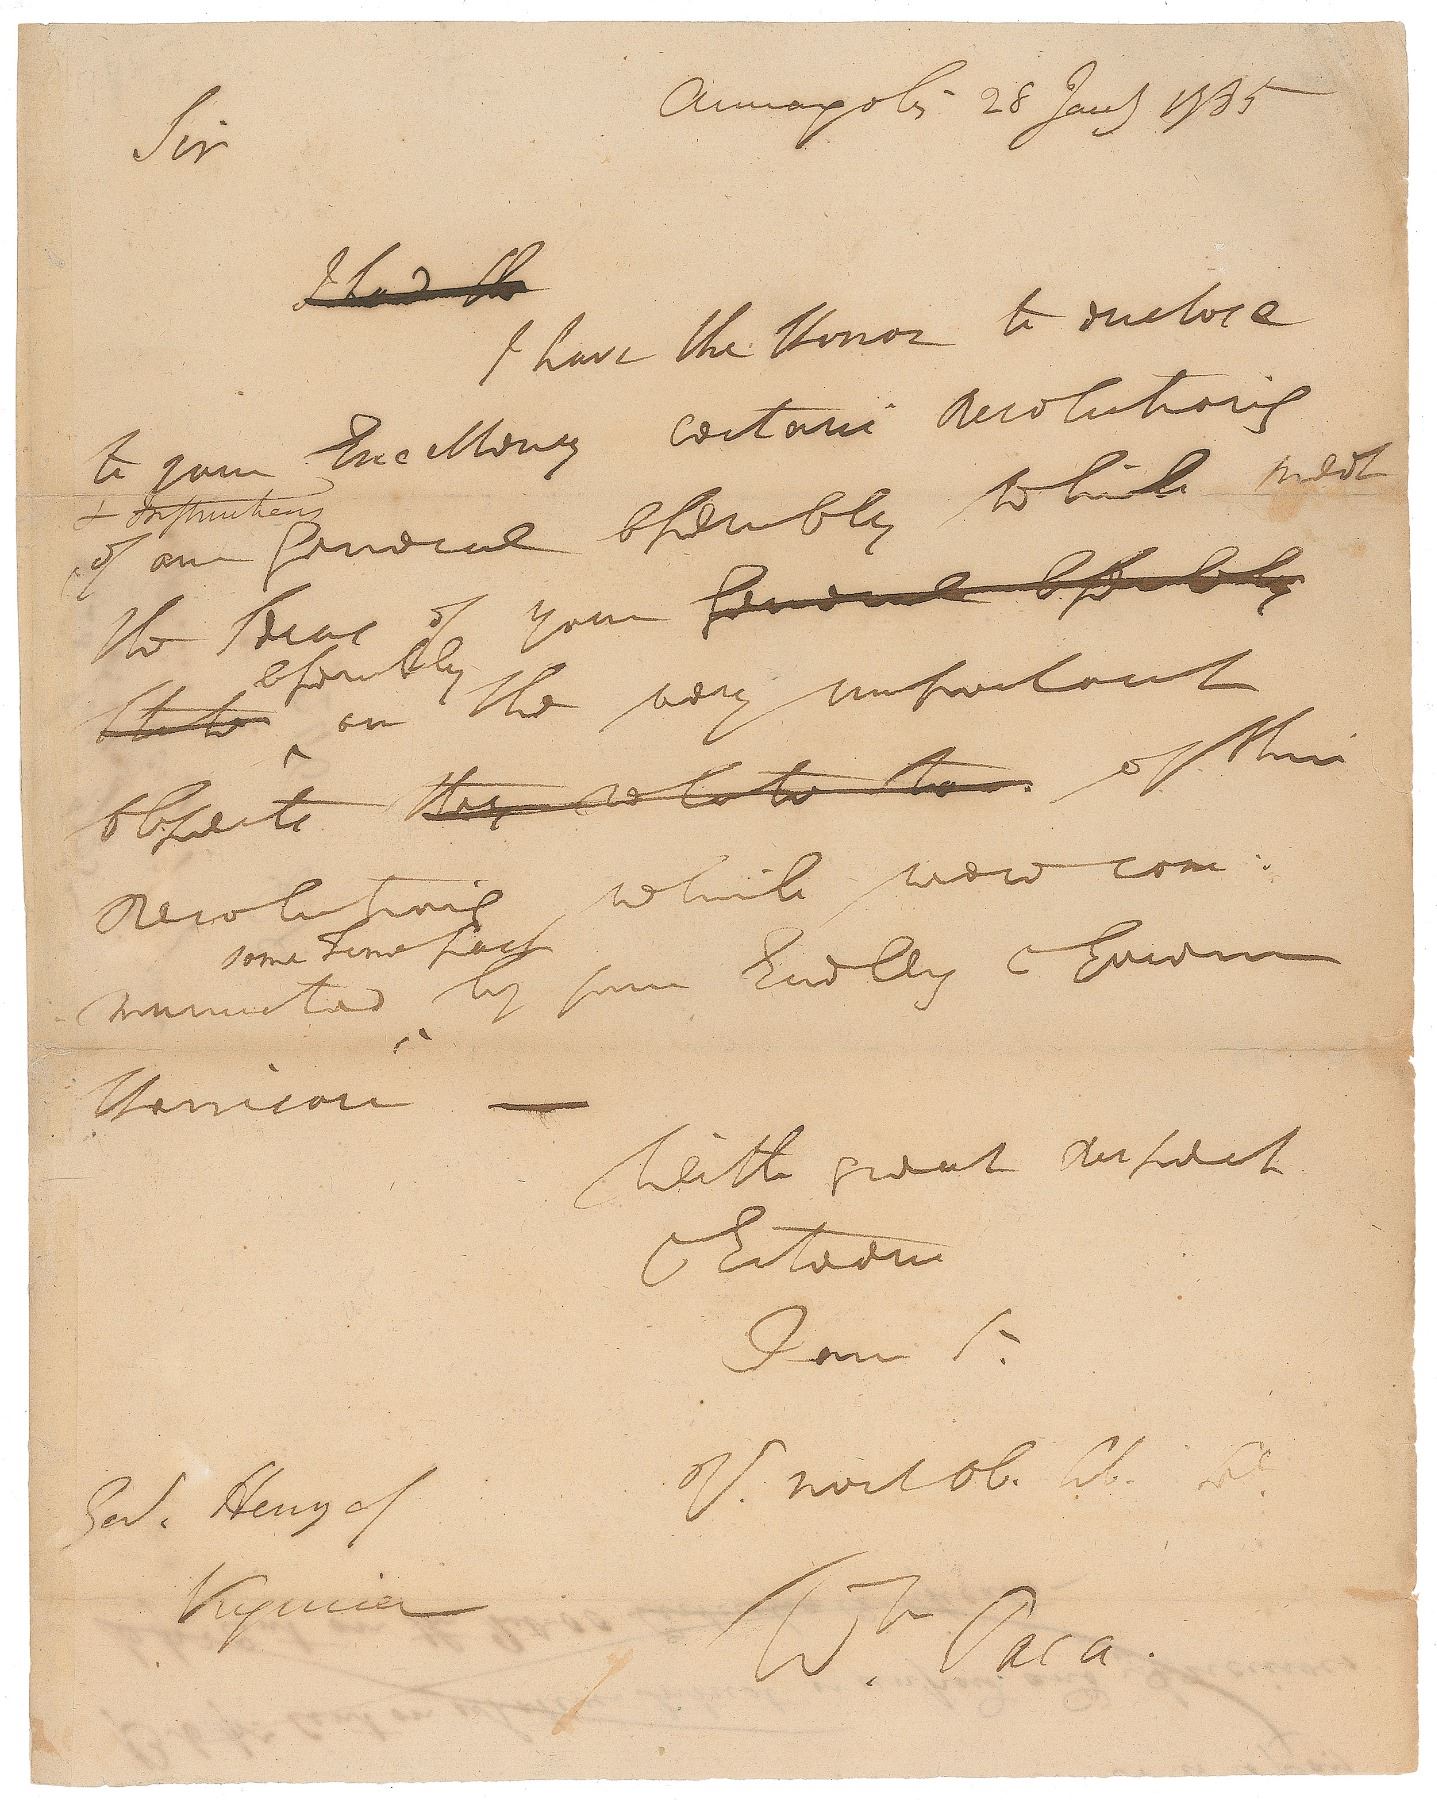 Annapolis 28 Jany 1785
Sir
I had the
I have the Honor to enclose
to your Excellency certain Resolutions
& Instructions
of our General Assembly which meet
the Ideas of your General Assembly
State Assembly on the very important
objects they relate to of their
Resolutions which were com:
some time past
municated by your Excelly Govern
Harrison —
With great respect
& Esteem
I am S.
Yr. most ob.
Gov. Henry of
Virginia
Wm. Paca.